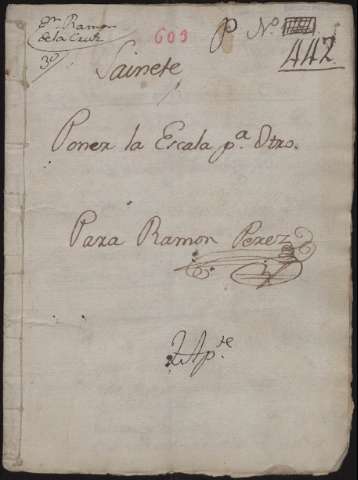 Dn. Ramon
de la Cruz
3º
609
P Nº.
442.
Sainete
Poner la Escala pª. Otro.
Para Ramon Perez
Apte.